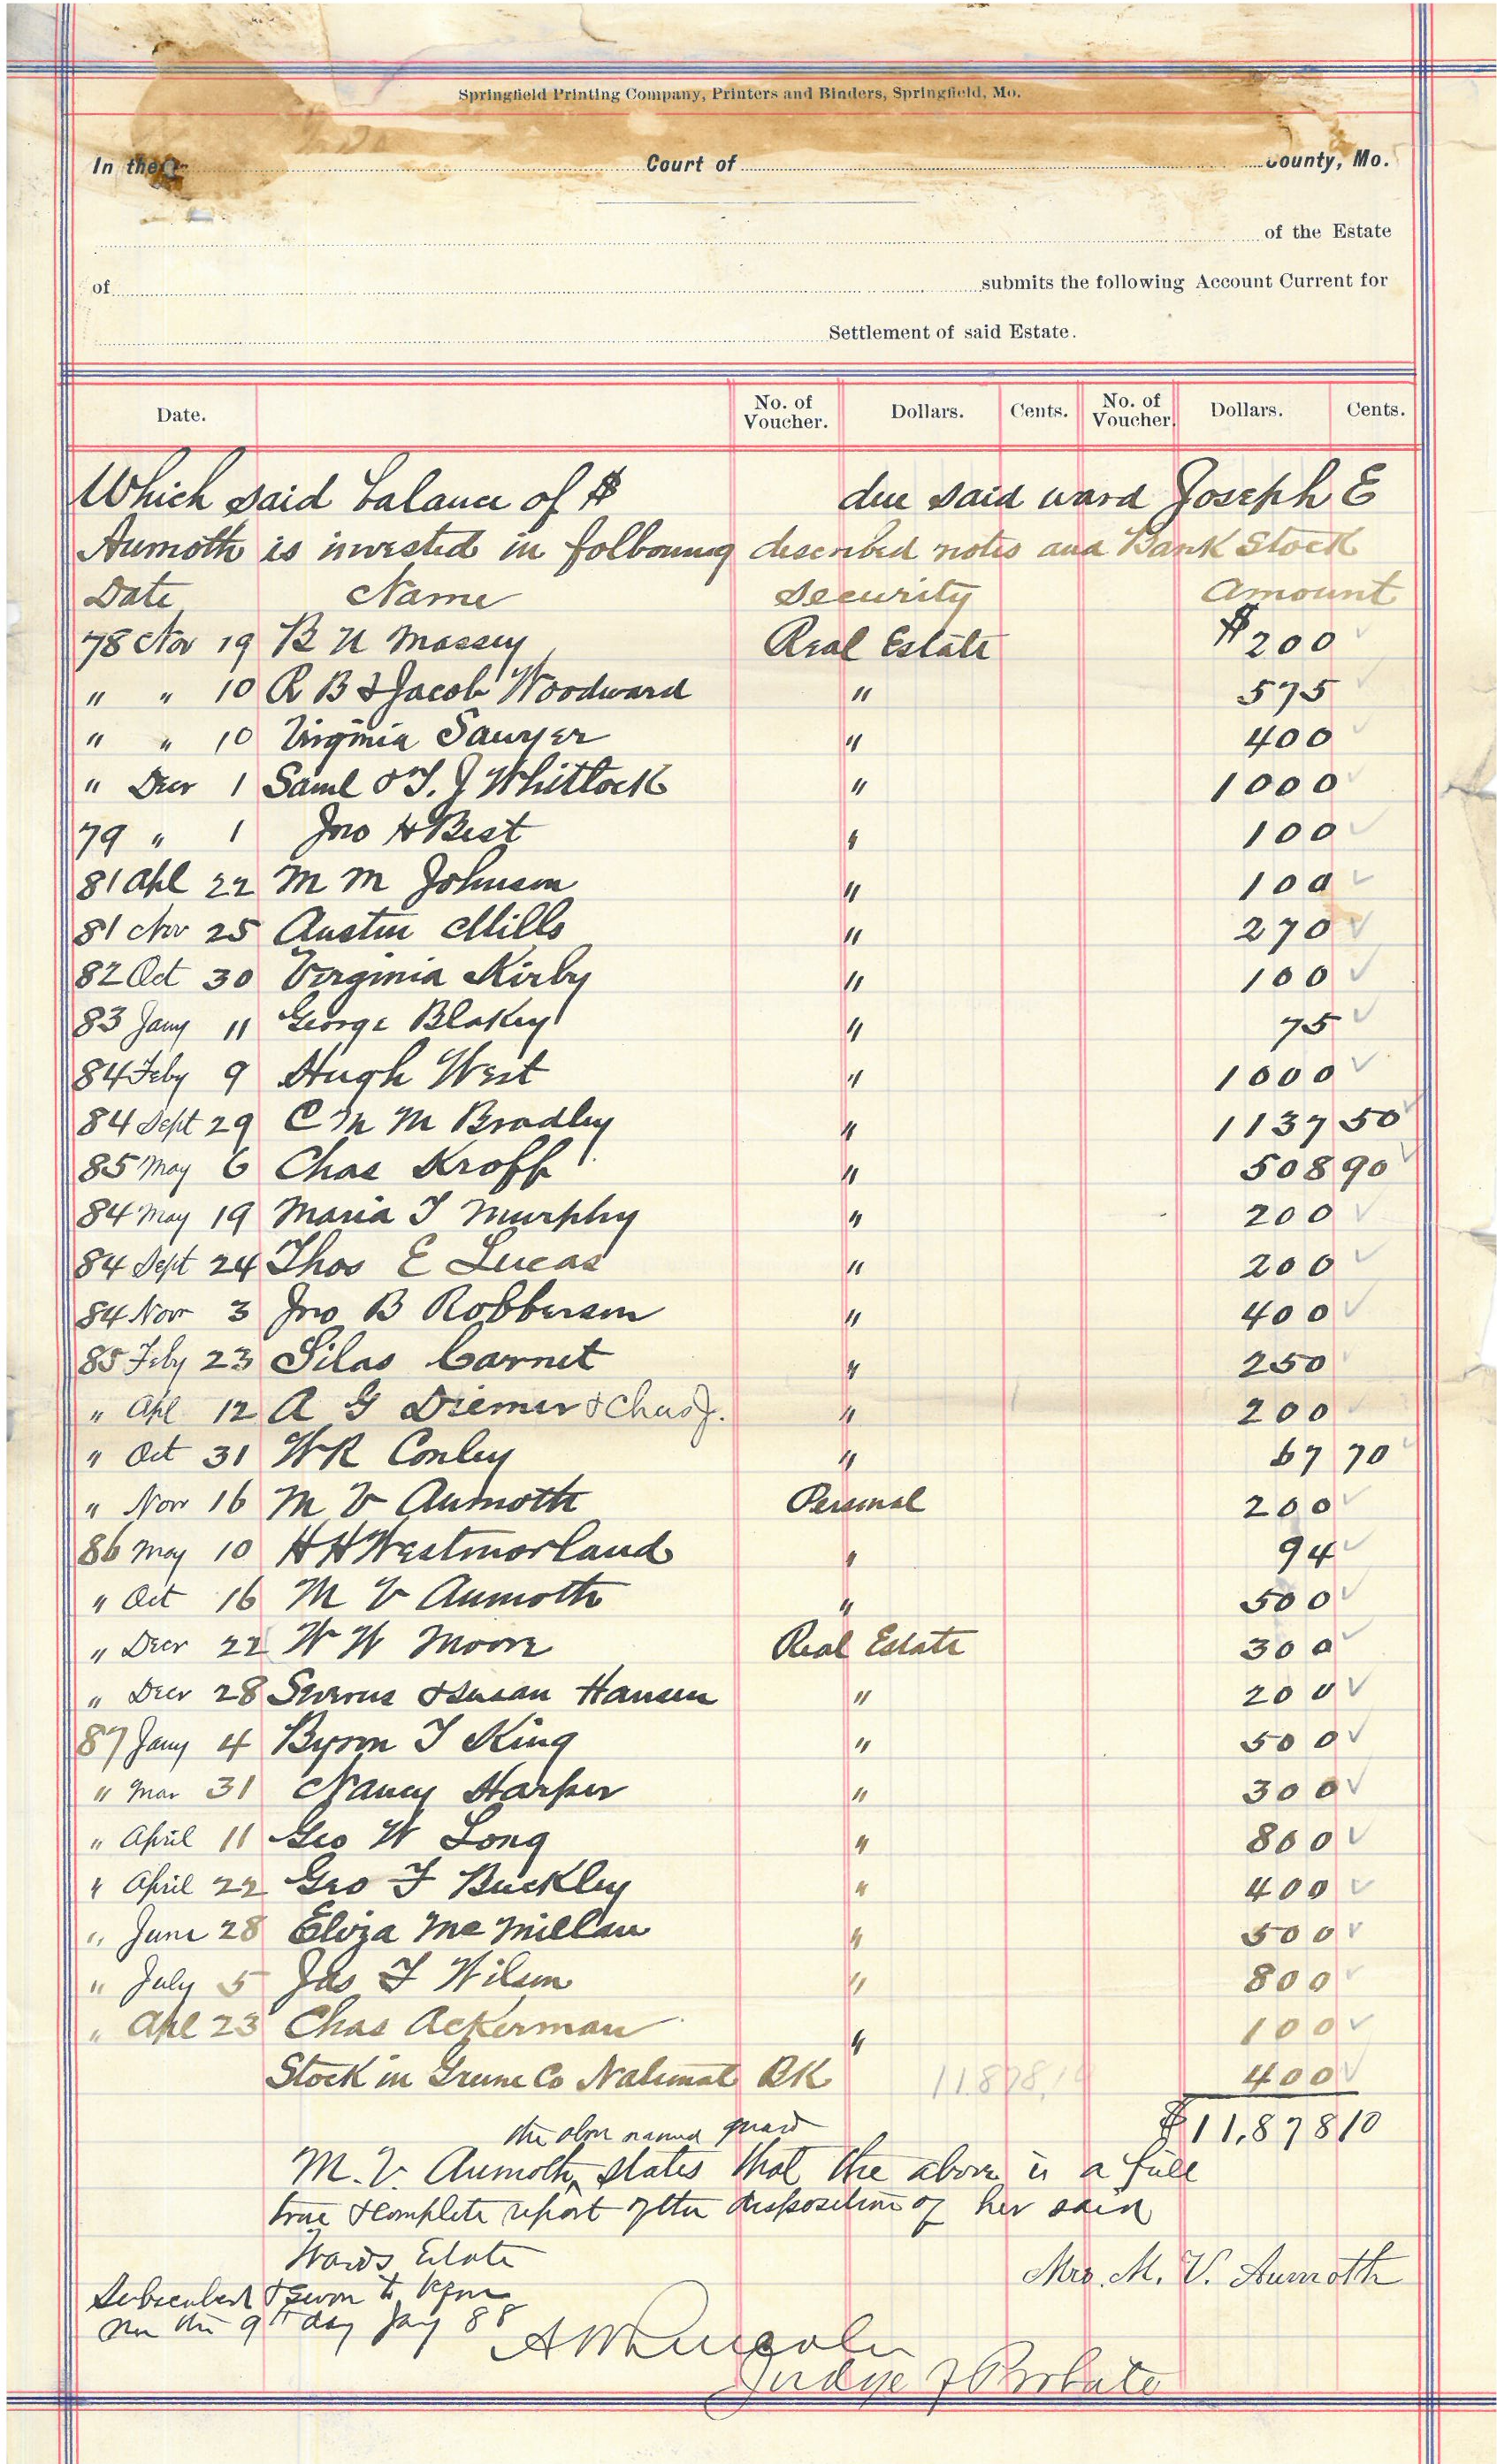 Springfield Printing Company, Printers and Binders, Springfield, Mo.
In the Court of County, Mo.
of the Estate
of submits the following Account Current for
Settlement of said Estate.
Date. No. of Voucher. Dollars. Cents. No. of Voucher. Dollars. Cents.
Which said balance of $ due said ward Joseph E
Aumoth is invested in following described notes and Bank Stock
Date Name Security Amount
78 Nov 19 B U Massey Real Estate $200
" " 10 R B & Jacob Woodward " 575
" " 10 Virginia Sawyer " 400
" Decr 1 Saml & T. J Whitlock " 1000
79 " 1 Jno H Best " 100
81 Apl 22 M M Johnson " 100
81 Nov 25 Austin Mills " 270
82 Oct 30 Virginia Kirby " 100
83 Jany 11 George Blakey " 75
84 Feby 9 Hugh West " 1000
84 Sept 29 C M M Bradley " 1137 50
85 May 6 Chas Kroff " 508 90
84 May 19 Maria T Murphy " 200
84 Sept 24 Thos E Lucas " 200
84 Nov 3 Jno B Robberson " 400
85 Feby 23 Silas Carnet " 250
" Apl 12 A G Diemer & Chas J. " 200
" Oct 31 WR Conley " 67 70
" Nov 16 M V Aumoth Personal 200
86 May 10 H H Westmorland " 94
" Oct 16 M V Aumoth " 500
" Decr 22 W W Moore Real Estate 300
" Decr 28 & Susan Hansen " 200
87 Jany 4 Byron T King " 500
" Mar 31 Nancy Harper " 300
" April 11 Geo W Long " 800
" April 22 Geo F Buckley " 400
" June 28 Eliza McMillan " 500
" July 5 Jas F Wilson " 800
" Apl 23 Chas Ackerman " 100
Stock in Greene Co National BK 11,878,10 400
$11,878 10
the above named guard
M. V. Aumoth, states that the above is a full
true & complete report of the disposition of her said
Wards Estate
Mrs. M. V. Aumoth
Subscribed & sworn to before
me this 9th day Jany 88
Judge of Probate